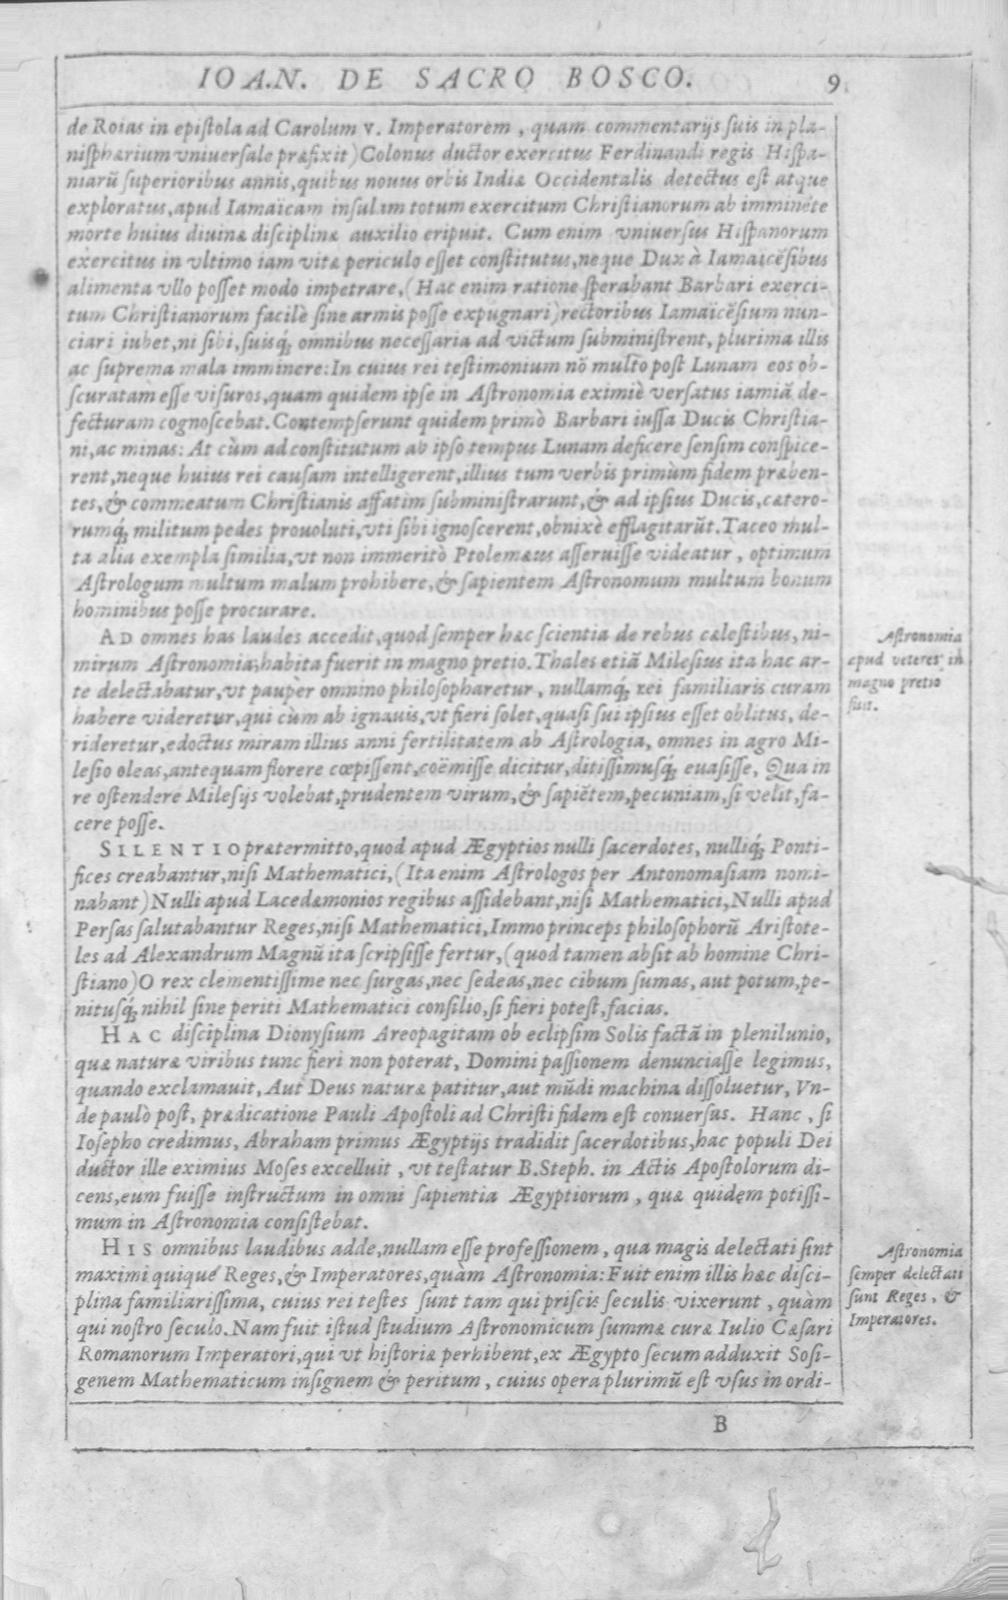 IOAN. DE SACRO BOSCO. 9
de Roias in epiſtola ad Carolum v. Imperatorem, quam commentarijs ſuis in pla-
niſphærium vniuerſale præfixit) Colonus ductor exercitus Ferdinandi regis Hiſpa-
niarū ſuperioribus annis, quibus nouus orbis Indiæ Occidentalis detectus eſt atque
exploratus, apud Iamaïcam inſulam totum exercitum Chriſtianorum ab imminēte
morte huius diuinæ diſciplinæ auxilio eripuit. Cum enim vniuerſus Hiſpanorum
exercitus in vltimo iam vitæ periculo eſſet conſtitutus, neque Dux à Iamaicēſibus
alimenta vllo poſſet modo impetrare, (Hac enim ratione ſperabant Barbari exerci-
tum Chriſtianorum facilè ſine armis poſſe expugnari) rectoribus Iamaïcēſium nun-
ciari iubet, ni ſibi, ſuisq́; omnibus neceſſaria ad victum ſubminiſtrent, plurima illis
ac ſuprema mala imminere: In cuius rei teſtimonium nō multo poſt Lunam eos ob-
ſcuratam eſſe viſuros, quam quidem ipſe in Aſtronomia eximiè verſatus iamiā de-
fecturam cognoſcebat. Contempſerunt quidem primò Barbari iuſſa Ducis Chriſtia-
ni, ac minas: At cùm ad conſtitutum ab ipſo tempus Lunam deficere ſenſim conſpice-
rent, neque huius rei cauſam intelligerent, illius tum verbis primùm fidem præben-
tes, & commeatum Chriſtianis affatim ſubminiſtrarunt, & ad ipſius Ducis, cætero-
rumq́; militum pedes prouoluti, vti ſibi ignoſcerent, obnixè efflagitarūt. Taceo mul-
ta alia exempla ſimilia, vt non immeritò Ptolemæus aſſeruiſſe videatur, optimum
Aſtrologum multum malum prohibere, & ſapientem Aſtronomum multum bonum
hominibus poſſe procurare.
AD omnes has laudes accedit, quod ſemper hæc ſcientia de rebus cæleſtibus, ni-
mirum Aſtronomia, habita fuerit in magno pretio. Thales etiā Mileſius ita hac ar-
te delectabatur, vt pauper omnino philoſopharetur, nullamq́; rei familiaris curam
habere videretur, qui cùm ab ignauis, vt fieri ſolet, quaſi ſui ipſius eſſet oblitus, de-
rideretur, edoctus miram illius anni fertilitatem ab Aſtrologia, omnes in agro Mi-
leſio oleas, antequam florere cœpiſſent, coëmiſſe dicitur, ditiſſimusq́; euaſiſſe, Qua in
re oſtendere Mileſijs volebat, prudentem virum, & ſapiētem, pecuniam, ſi velit, fa-
cere poſſe.
Aſtronomia
apud veteres in
magno pretio
fuit.
SILENTIO prætermitto, quod apud Ægyptios nulli ſacerdotes, nulliq́; Ponti-
fices creabantur, niſi Mathematici, (Ita enim Aſtrologos per Antonomaſiam nomi-
nabant) Nulli apud Lacedæmonios regibus aſſidebant, niſi Mathematici, Nulli apud
Perſas ſalutabantur Reges, niſi Mathematici, Immo princeps philoſophorū Ariſtote-
les ad Alexandrum Magnū ita ſcripſiſſe fertur, (quod tamen abſit ab homine Chri-
ſtiano) O rex clementiſſime nec ſurgas, nec ſedeas, nec cibum ſumas, aut potum, pe-
nitusq́; nihil ſine periti Mathematici conſilio, ſi fieri poteſt, facias.
HAC diſciplina Dionyſium Areopagitam ob eclipſim Solis factā in plenilunio,
quæ naturæ viribus tunc fieri non poterat, Domini paſſionem denunciaſſe legimus,
quando exclamauit, Aut Deus naturæ patitur, aut mūdi machina diſſoluetur, Vn-
de paulò poſt, prædicatione Pauli Apoſtoli ad Chriſti fidem eſt conuerſus. Hanc, ſi
Ioſepho credimus, Abraham primus Ægyptijs tradidit ſacerdotibus, hac populi Dei
ductor ille eximius Moſes excelluit, vt teſtatur B. Steph. in Actis Apoſtolorum di-
cens, eum fuiſſe inſtructum in omni ſapientia Ægyptiorum, quæ quidem potiſſi-
mum in Aſtronomia conſiſtebat.
HIS omnibus laudibus adde, nullam eſſe profeſſionem, qua magis delectati ſint
maximi quique Reges, & Imperatores, quàm Aſtronomia: Fuit enim illis hæc diſci-
plina familiariſſima, cuius rei teſtes ſunt tam qui priſcis ſeculis vixerunt, quàm
qui noſtro ſeculo. Nam fuit iſtud ſtudium Aſtronomicum ſummæ curæ Iulio Cæſari
Romanorum Imperatori, qui vt hiſtoriæ perhibent, ex Ægypto ſecum adduxit Soſi-
genem Mathematicum inſignem & peritum, cuius opera plurimū eſt vſus in ordi-
Aſtronomia
ſemper delectati
ſunt Reges, &
Imperatores.
B